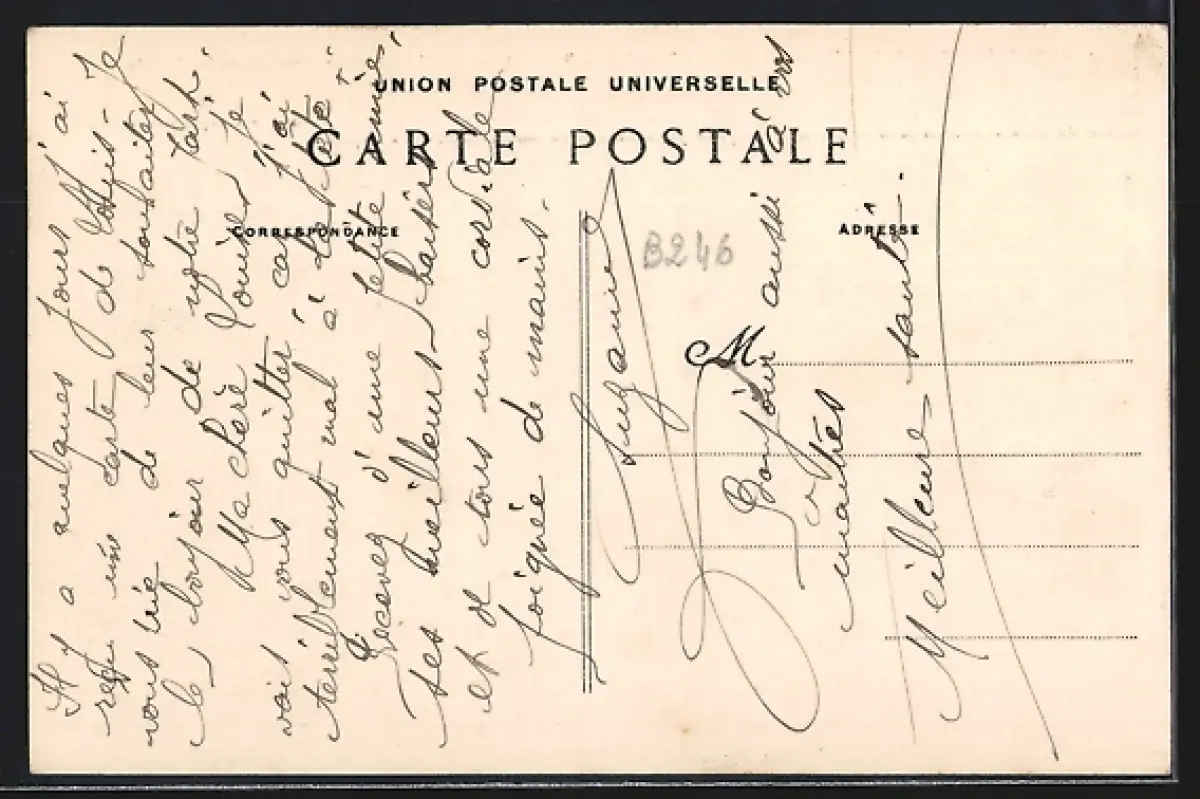 UNION POSTALE UNIVERSELLE
CARTE POSTALE
CORRESPONDANCE
ADRESSE
B246
M
Il y a quelques jours j'ai
reçu une carte de Je
vous prie de leur souhaiter
le bonjour de notre part.
Ma chère Louise, Je
vais vous quitter car j'ai
terriblement mal à la tête.
Recevez d'une petite amie,
ses meilleurs baisers
et de tous une cordiale
poignée de mains.
Suzanne
Bonjour aussi à vos
maîtres
Meilleure santé.